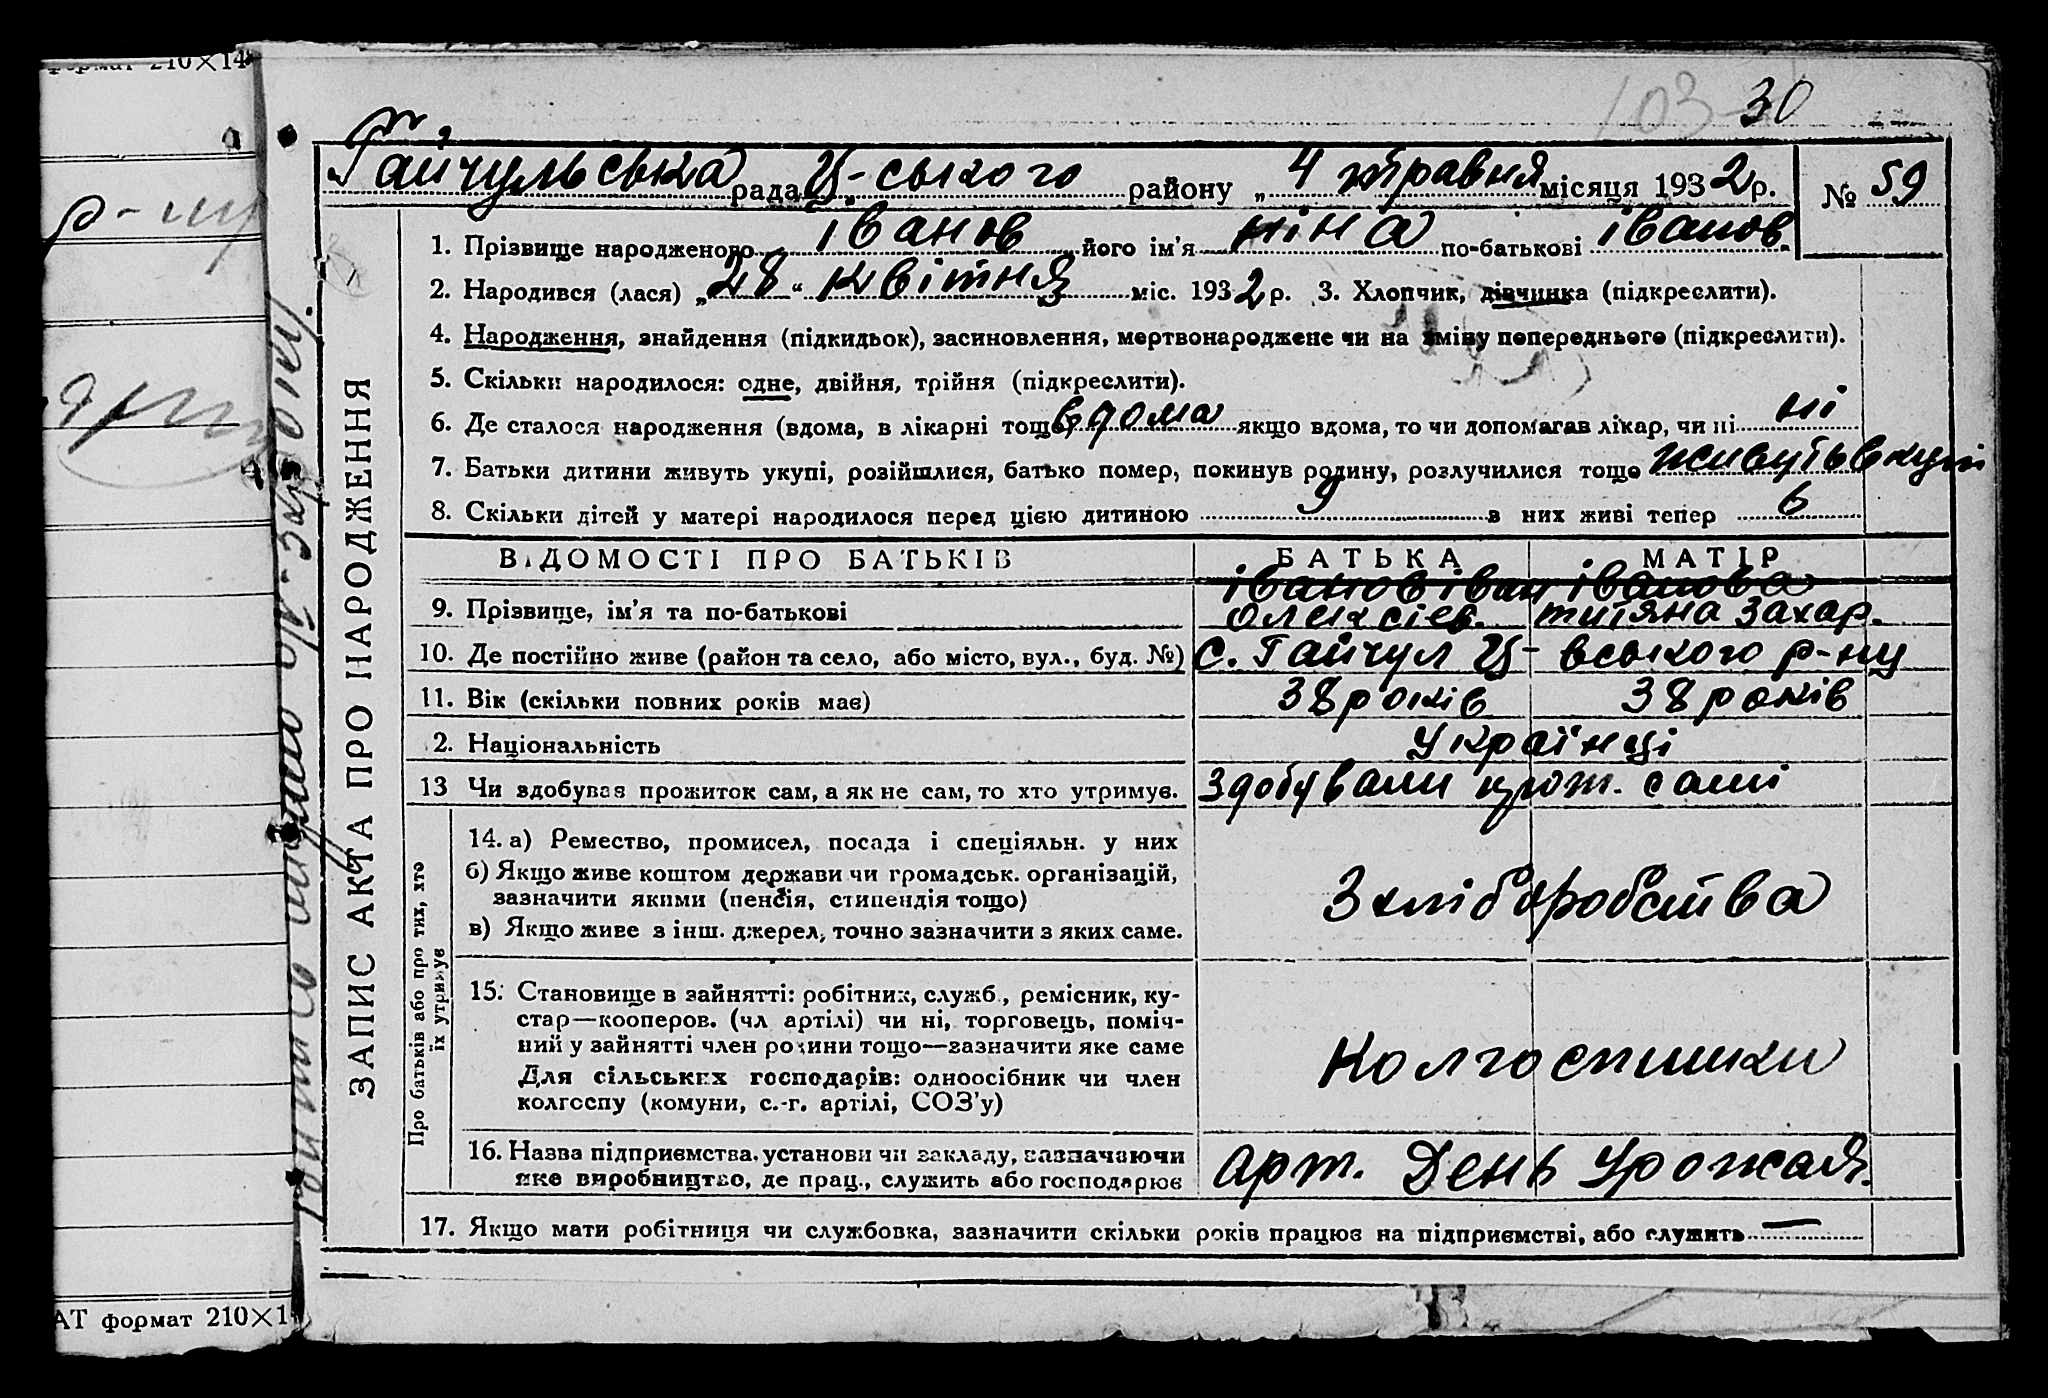 формат 210×14
103
30
Гайчульська рада Ц-ського району „ 4 травня місяця 1932 р. № 59
р-ну
1. Прізвище народженого Іванов його ім'я Ніна по-батькові Іванов.
2. Народився (лася) „28“ квітня міс. 1932 р. 3. Хлопчик, дівчинка (підкреслити).
4. Народження, знайдення (підкидьок), засиновлення, мертвонароджене чи на зміну попереднього (підкреслити).
5. Скільки народилося: одне, двійня, трійня (підкреслити).
6. Де сталося народження (вдома, в лікарні тощо) вдома якщо вдома, то чи допомагав лікар, чи ні ні
7. Батьки дитини живуть укупі, розійшлися, батько помер, покинув родину, розлучилися тощо живуть вкупі
8. Скільки дітей у матері народилося перед цією дитиною 9 з них живі тепер 6
ЗАПИС АКТА ПРО НАРОДЖЕННЯ
ВІДОМОСТІ ПРО БАТЬКІВ БАТЬКА МАТІР
Іванов Іван Іванова
9. Прізвище, ім'я та по-батькові Олексієв. Титяна Захар.
10. Де постійно живе (район та село, або місто, вул., буд. №) с. Гайчул Ц-вського р-ну
11. Вік (скільки повних років має) 38 років 38 років
2. Національність Українці
13 Чи здобував прожиток сам, а як не сам, то хто утримує. Здобували прож. самі
Про батьків або про тих, хто
їх утримує
14. а) Ремество, промисел, посада і спеціяльн. у них
б) Якщо живе коштом держави чи громадськ. організацій,
зазначити якими (пенсія, стипендія тощо)
в) Якщо живе з інш. джерел, точно зазначити з яких саме.
З хліборобства
15. Становище в зайнятті: робітник, служб., ремісник, ку-
стар—кооперов. (чл артілі) чи ні, торговець, поміч-
ний у зайнятті член родини тощо—зазначити яке саме
Для сільських господарів: одноосібник чи член
колгоспу (комуни, с.-г. артілі, СОЗ'у)
Колгоспники
16. Назва підприємства, установи чи закладу, зазначаючи
яке виробництво, де прац., служить або господарює
Арт. День Урожая.
17. Якщо мати робітниця чи службовка, зазначити скільки років працює на підприємстві, або служить —
АТ формат 210×1